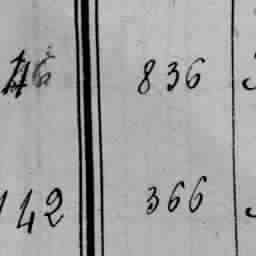 836
142 366